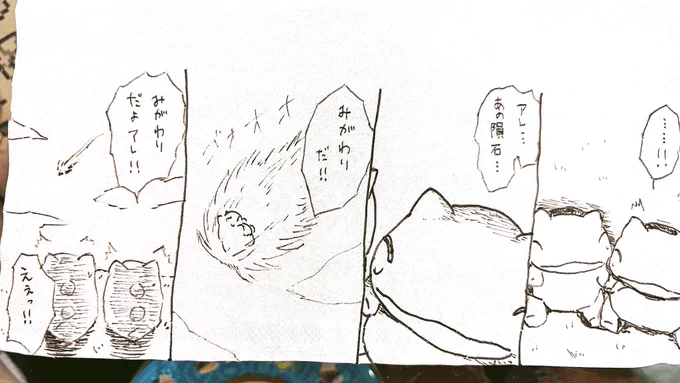 ……!!
アレ…
あの隕石…
みがわり
だ!!
ゴオオオ
みがわり
だよアレ!!
ええっ!!